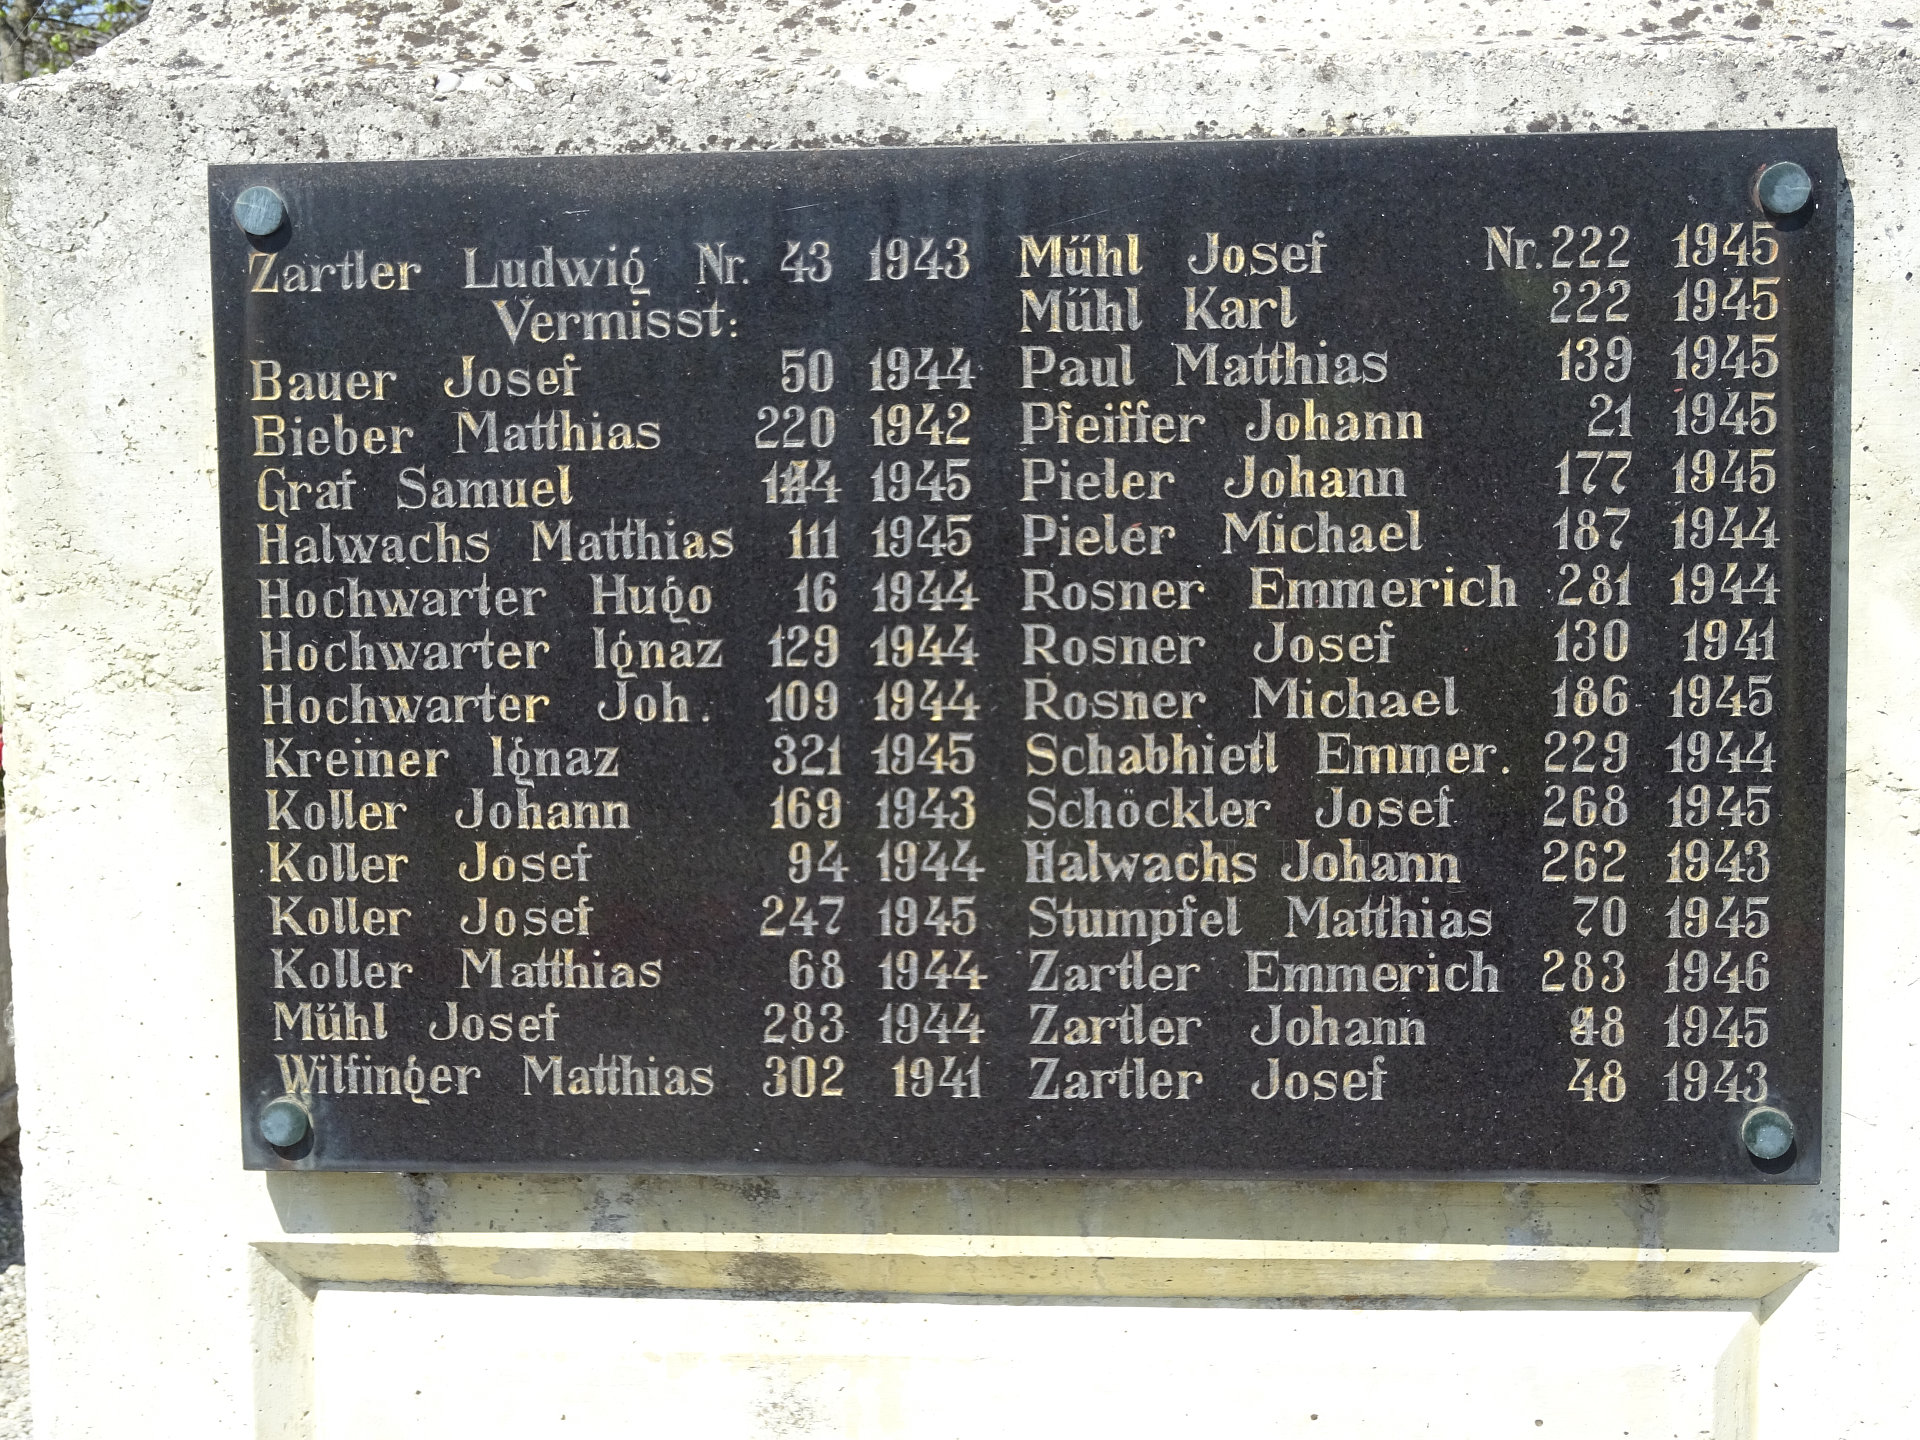 Zartler Ludwig Nr. 43 1943
Vermisst:
Bauer Josef 50 1944
Bieber Matthias 220 1942
Graf Samuel 1945
Halwachs Matthias 111 1945
Hochwarter Hugo 16 1944
Hochwarter Ignaz 129 1944
Hochwarter Joh. 109 1944
Kreiner Ignaz 321 1945
Koller Johann 169 1943
Koller Josef 94 1944
Koller Josef 247 1945
Koller Matthias 68 1944
Mühl Josef 283 1944
Wilfinger Matthias 302 1941
Mühl Josef Nr. 222 1945
Mühl Karl 222 1945
Paul Matthias 139 1945
Pfeiffer Johann 21 1945
Pieler Johann 177 1945
Pieler Michael 187 1944
Rosner Emmerich 281 1944
Rosner Josef 130 1941
Rosner Michael 186 1945
Schabhietl Emmer. 229 1944
Schöckler Josef 268 1945
Halwachs Johann 262 1943
Stumpfel Matthias 70 1945
Zartler Emmerich 283 1946
Zartler Johann 1945
Zartler Josef 48 1943